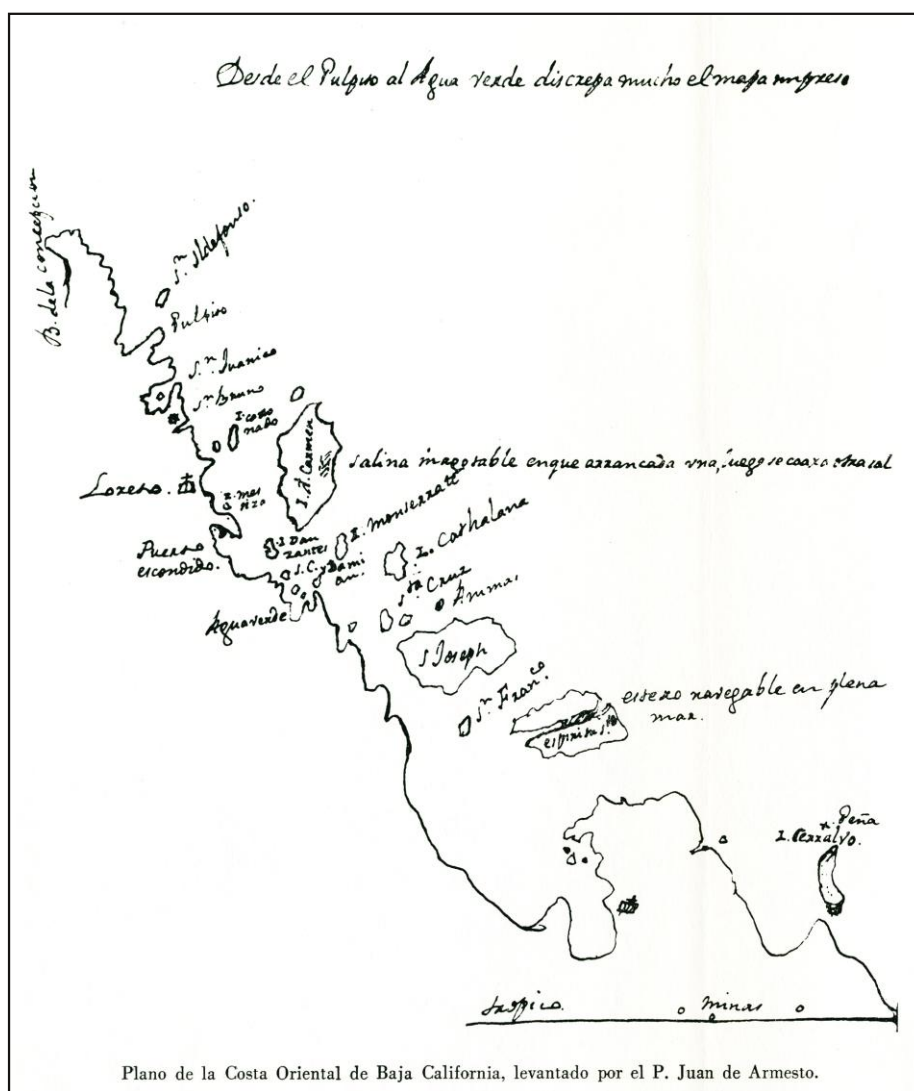 Desde el Pulpiro al Agua verde discrepa mucho el mapa impreso
B. de la concepcion
Sn. Ildefonso.
Pulpiro
Sn. Juanico
Sn. Bruno
I. coro
nado
I. d. Carmen
salina inagotable en que arrancada una, luego se coaxa otra sal
Loreto.
I. mes
tizo
Puerto
escondido.
I. Dan
zantes
I. Monserratt
I. Cathalana
S. C. y Dami
an.
Sta. Cruz
Animas
Aguaverde
S Joseph
Sn. Franco.
estero navegable en plena
mar.
espiritu Sto
Peña
I. Cerralvo.
tropico
minas
Plano de la Costa Oriental de Baja California, levantado por el P. Juan de Armesto.